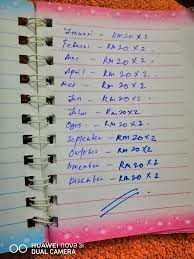 Januari - RM 20 X 2
Februari - RM 20 X 2
Mac - RM 20 X 2
April - RM 20 X 2
Mei - RM 20 X 2
Jun - RM 20 X 2
Julai - RM 20 X 2
Ogos - RM 20 X 2
September - RM 20 X 2
Oktober - RM 20 X 2
November - RM 20 X 2
Disember - RM 20 X 2
HUAWEI nova 3i
DUAL CAMERA